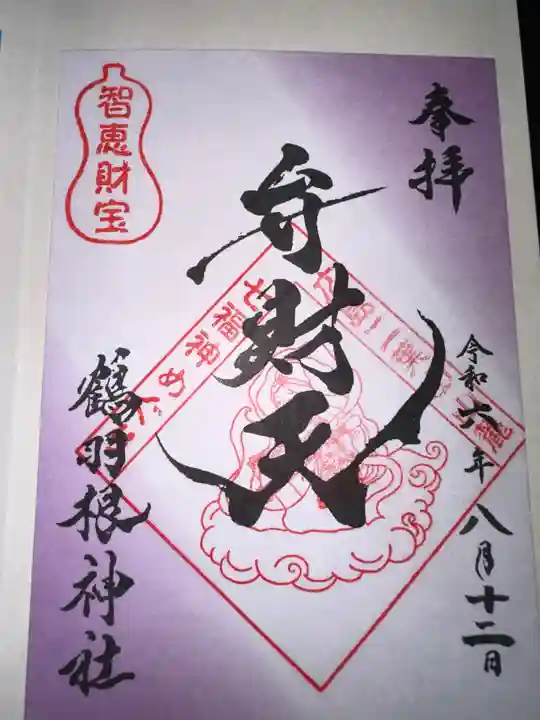 奉拝
令和六年八月十二日
弁財天
智恵財宝
七福神め
鶴羽根神社